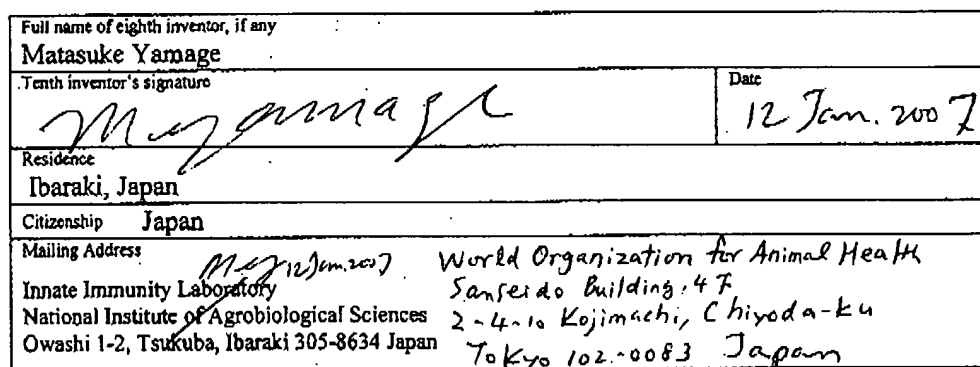 Full name of eighth inventor, if any
Matasuke Yamage
Tenth inventor's signature
M Yamage
Date
12 Jan. 2007
Residence
Ibaraki, Japan
Citizenship Japan
Mailing Address
12 Jan. 2007
Innate Immunity Laboratory
National Institute of Agrobiological Sciences
Owashi 1-2, Tsukuba, Ibaraki 305-8634 Japan
World Organization for Animal Health
Sanseido Building, 4F
2-4-10 Kojimachi, Chiyoda-ku
Tokyo 102-0083 Japan